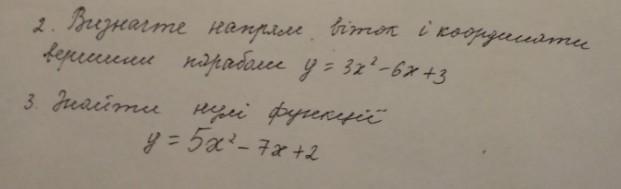 2. Визначте напрям віток і координати
вершини параболи y = 3x² - 6x + 3
3. Знайти нулі функції
y = 5x² - 7x + 2